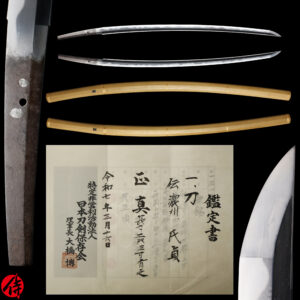 鑑定書
一、刀
伝濃州 氏貞
正真
令和七年三月十六日
特定非営利活動法人
日本刀剣保存会
理事長 大橋 博
侍